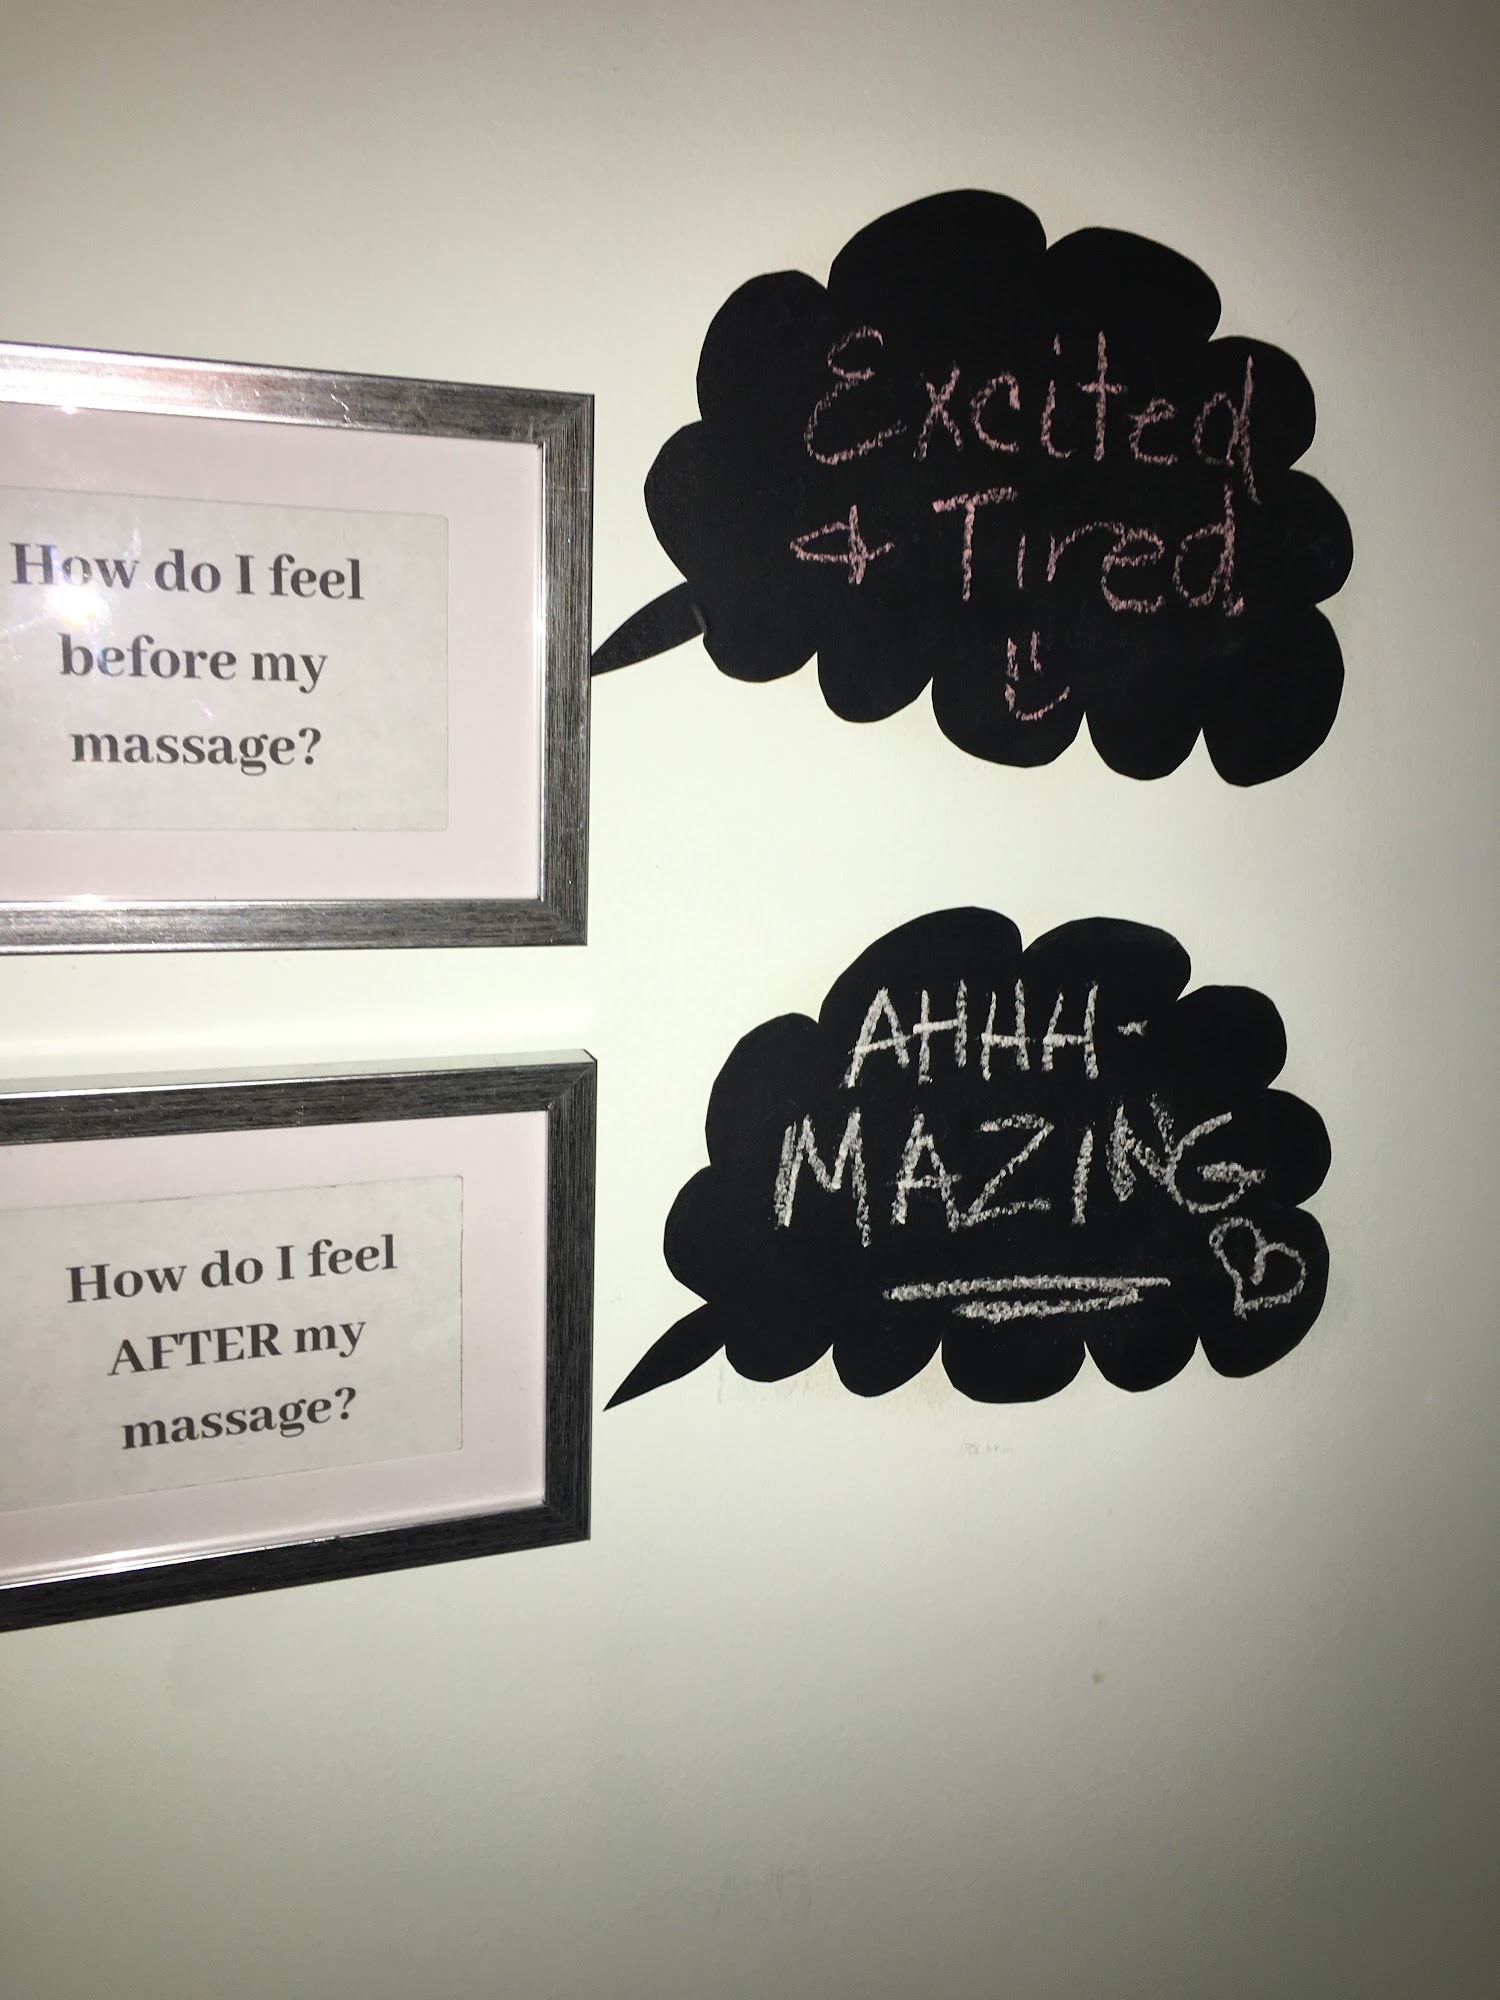 How do I feel
before my
massage?
Excited
& Tired
How do I feel
AFTER my
massage?
AHHH-
MAZING